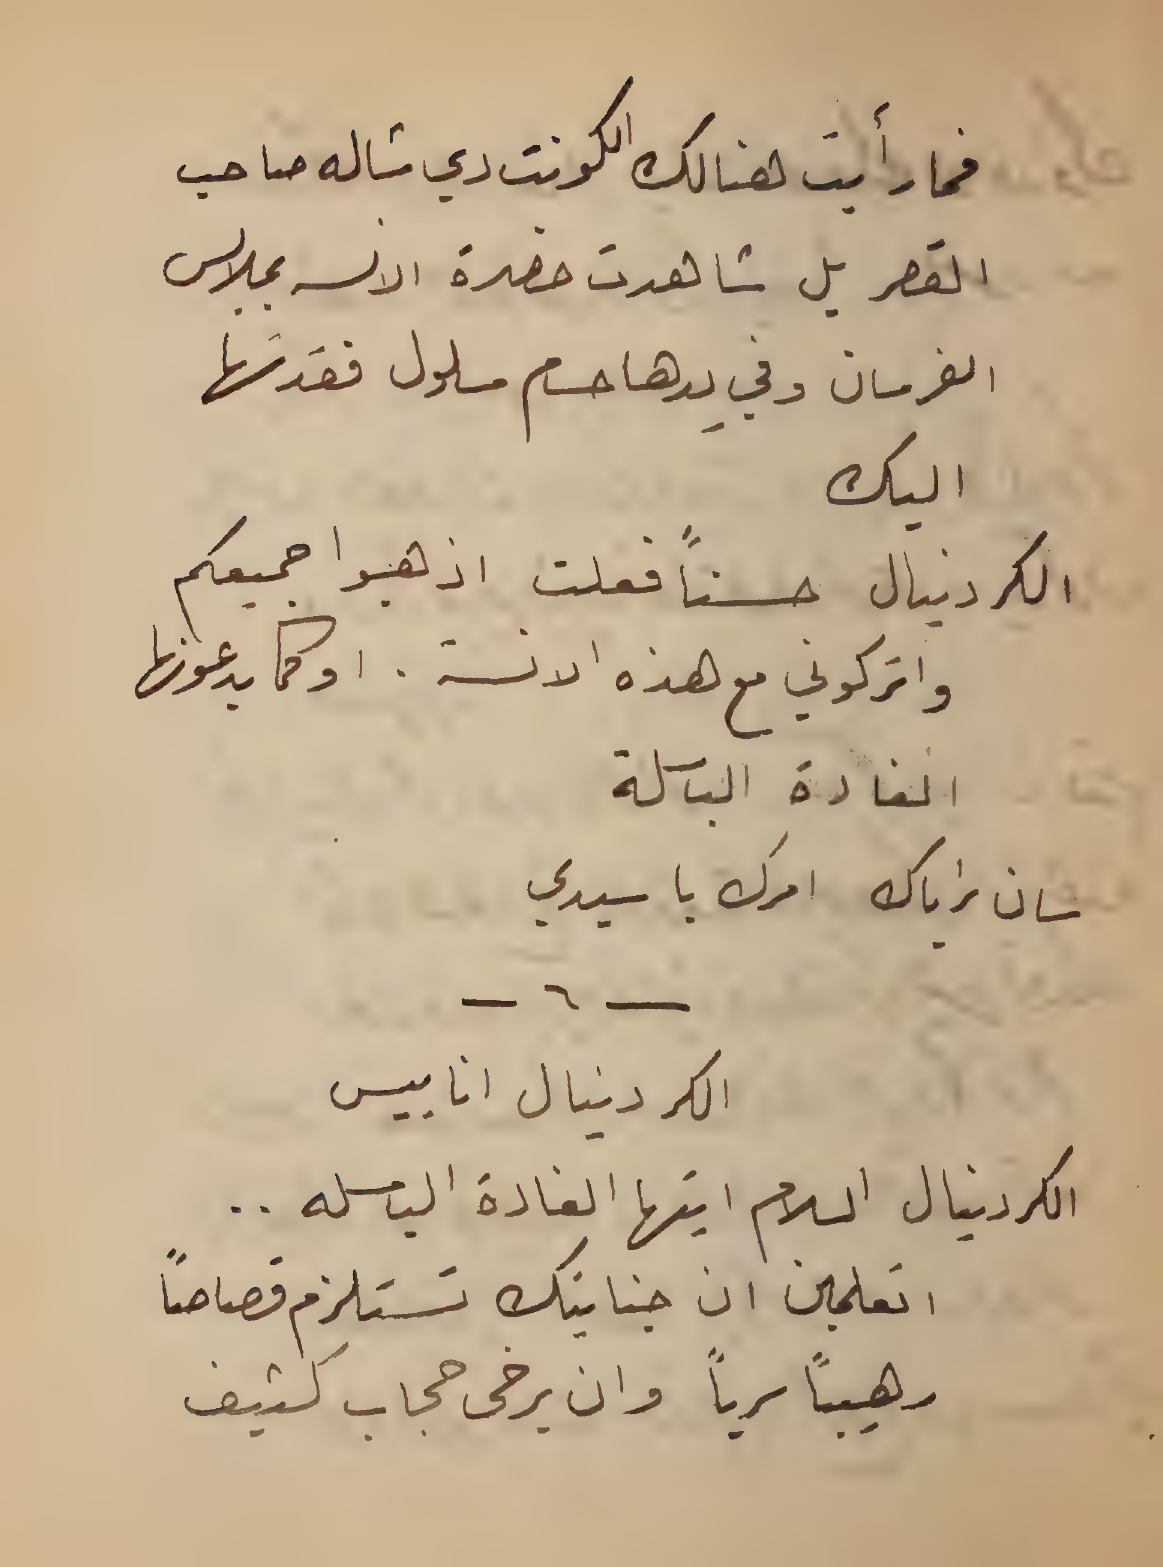 فما رأيت هنالك الكونت دي شاله صاحب
القصر بل شاهدت حضرة الانسه بملابس
الفرسان وفي يدها حسام مسلول فقدتها
اليك
الكردينال حسناً فعلت اذهبوا جميعكم
واتركوني مع هذه الانسة . او كما يدعونها
الغادة الباسلة
سان برياك امرك يا سيدي
— ٦ —
الكردينال انابيس
الكردينال السلام ايتها الغادة الباسله ..
اتعلمين ان جنايتك تستلزم قصاصاً
رهيباً سرياً وان يرخى حجاب كثيف